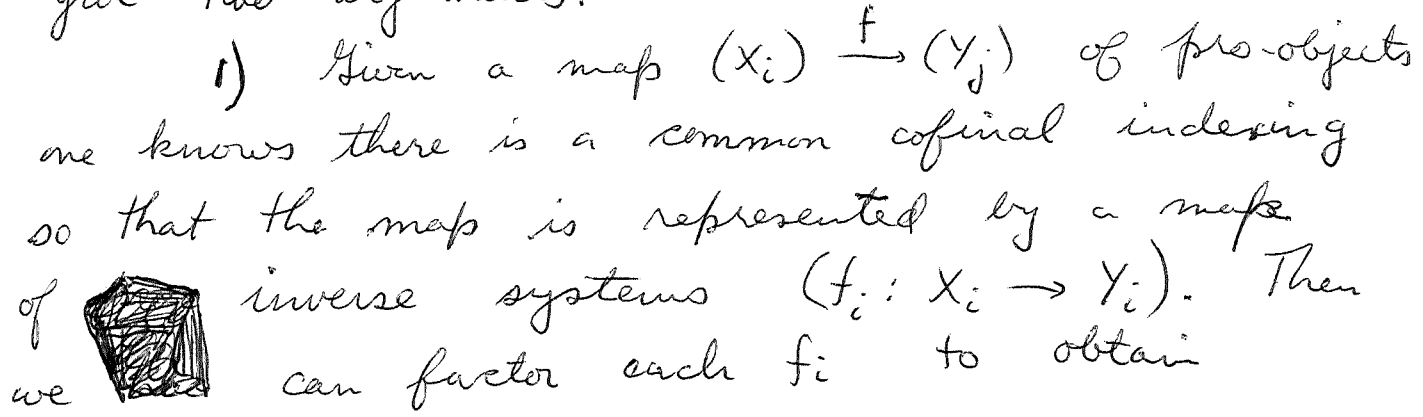 give two
1) Given a map (X_i) \xrightarrow{f} (Y_j) of pro-objects
one knows there is a common cofinal indexing
so that the map is represented by a map
of inverse systems (f_i : X_i → Y_i). Then
we can factor each f_i to obtain